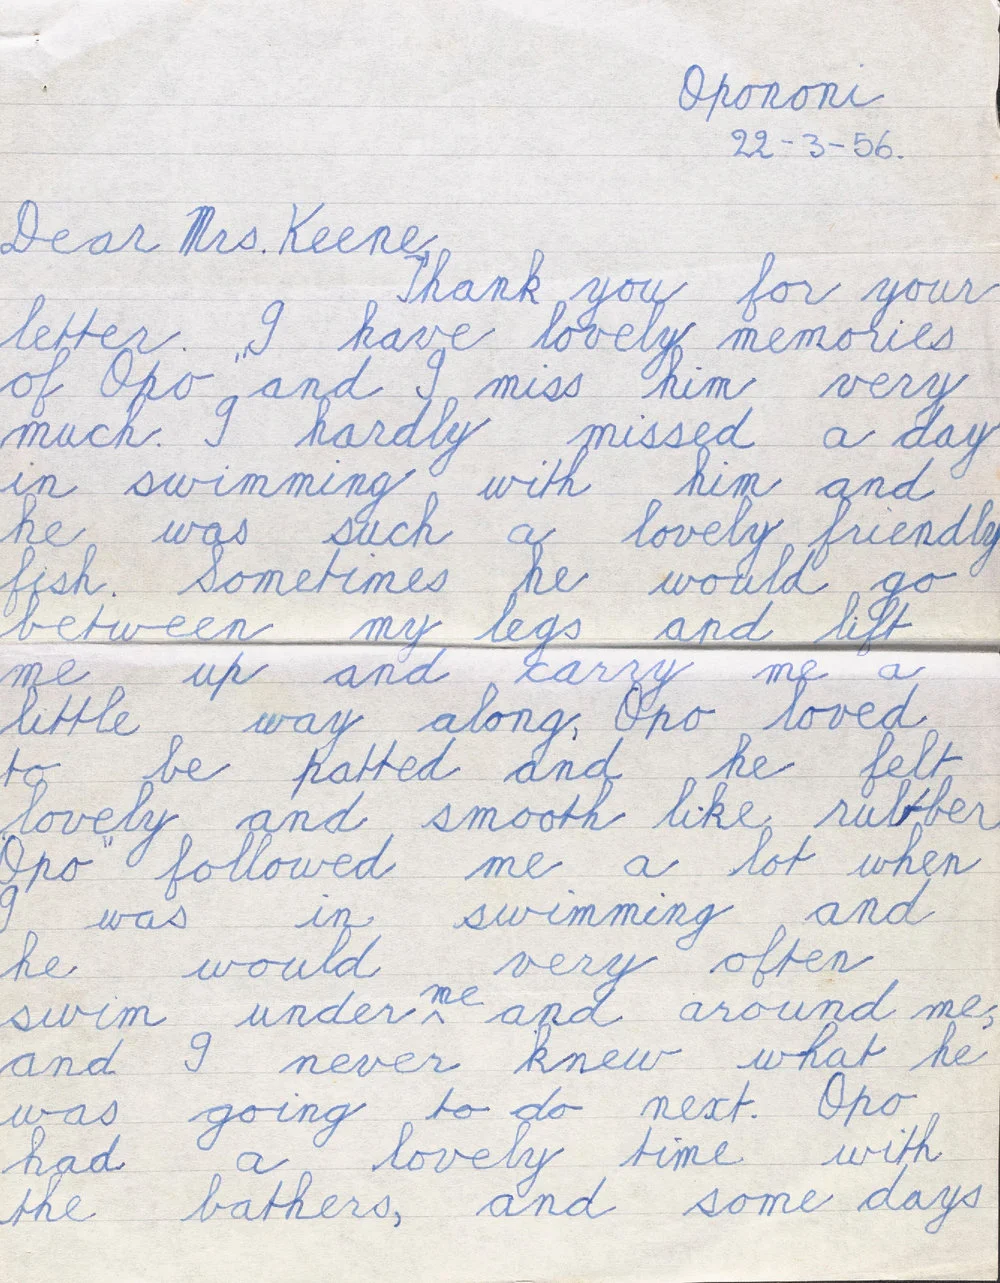 Opononi
22-3-56.
Dear Mrs. Keene,
Thank you for your
letter. I have lovely memories
of Opo" and I miss him very
much. I hardly missed a day
in swimming with him and
he was such a lovely friendly
fish. Sometimes he would go
between my legs and lift
me up and carry me a
little way along, Opo loved
to be patted and he felt
lovely and smooth like rubber
"Opo" followed me a lot when
I was in swimming and
he would very often
swim under me and around me,
and I never knew what he
was going to do next. Opo
had a lovely time with
the bathers, and some days